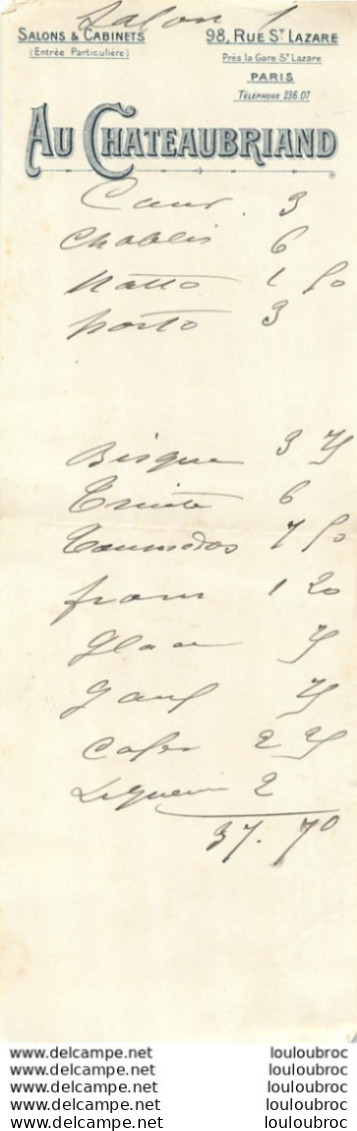 Salon 1
SALONS & CABINETS
(Entrée Particulière)
98, RUE ST LAZARE
Près la Gare St Lazare
PARIS
TÉLÉPHONE 236.07
AU CHATEAUBRIAND
3
Chablis 6
1 50
porto 3
Bisque 3 75
Truite 6
Tournedos 7 50
from 1 20
Glace 75
Gauf 75
Cafes 2 25
Liqueur 2
37.70
www.delcampe.net louloubroc
www.delcampe.net louloubroc
www.delcampe.net louloubroc
www.delcampe.net louloubroc
www.delcampe.net louloubroc